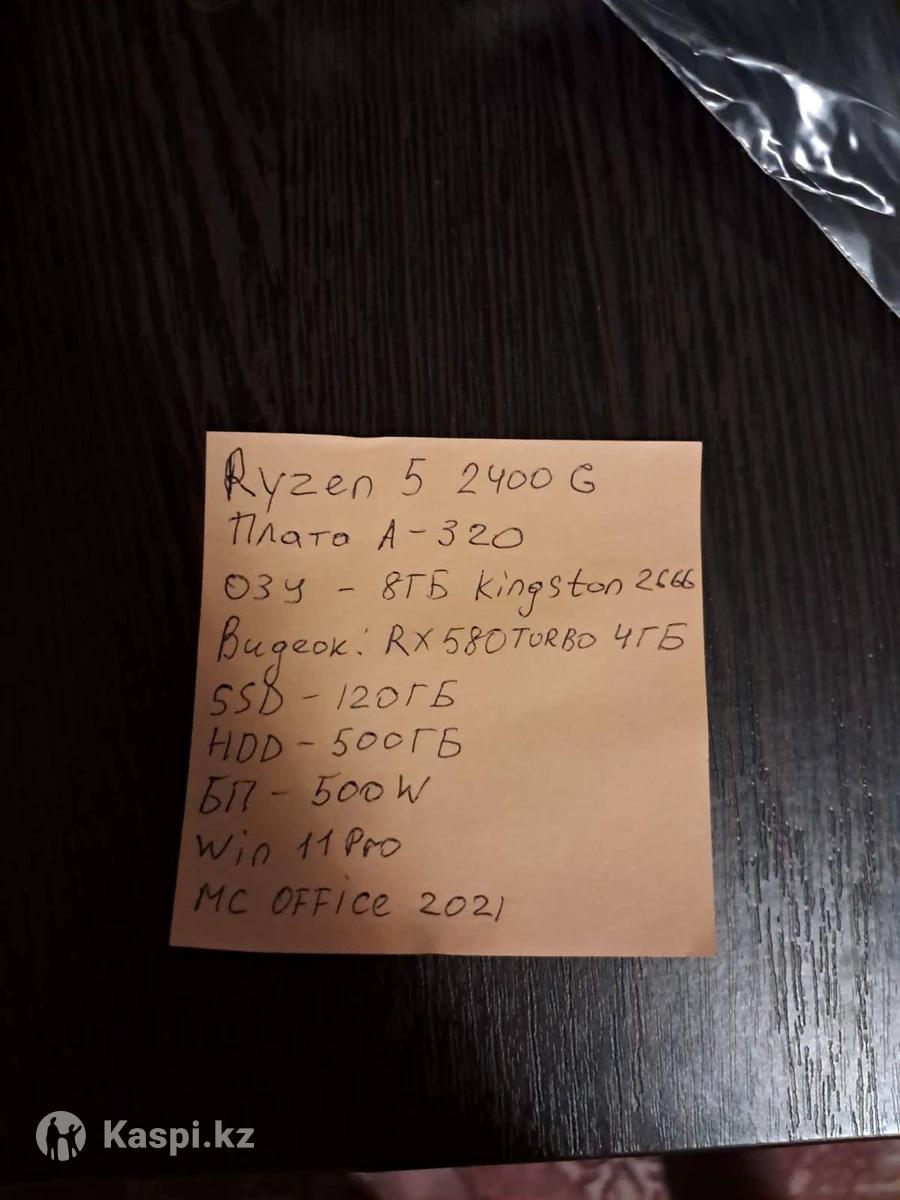 Ryzen 5 2400 G
Плата A-320
ОЗУ - 8ГБ Kingston 2666
Видеок: RX580TURBO 4ГБ
SSD - 120ГБ
HDD - 500ГБ
БП - 500W
Win 11 Pro
MC OFFice 2021
Kaspi.kz